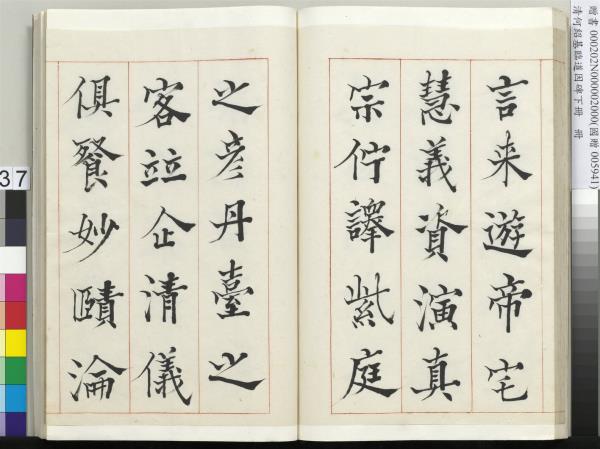 言来遊帝宅
慧義資演真
宗佇譯紫庭
之彦丹臺之
客竝企清儀
俱餐妙賾淪
贈書 000202N000002000(國贈 005941)
清何紹基臨道因碑下冊 冊
37